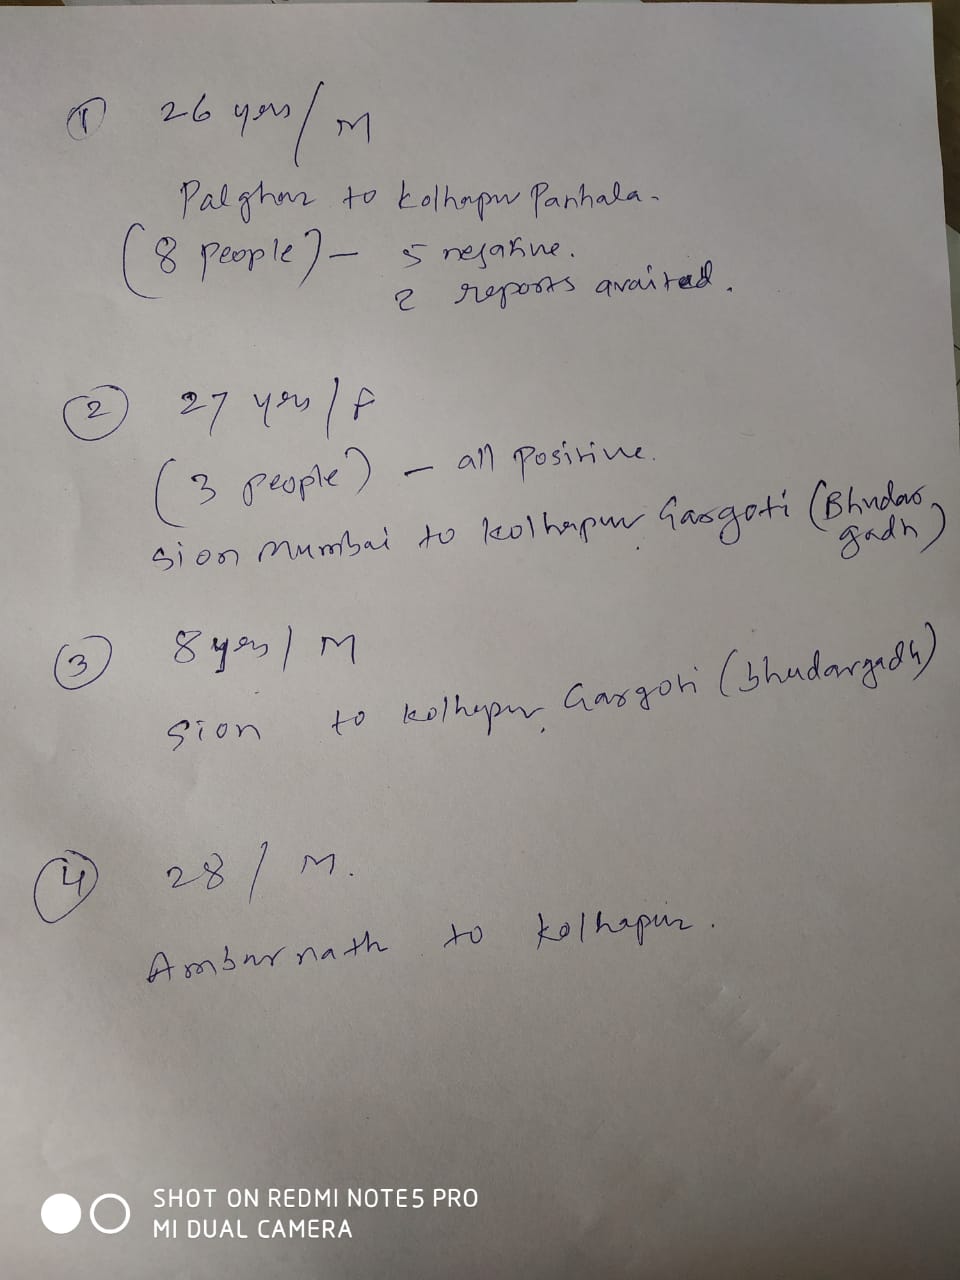 ① 26 yers / M
Palghar to Kolhapur Panhala.
(8 people) - 5 negative.
2 reports awaited.
② 27 yrs / F
(3 people) - all positive.
Sion Mumbai to Kolhapur, Gargoti (Bhudar
gadh)
③ 8 yers / M
Sion to Kolhapur, Gargoti (bhudargadh)
④ 28 / M.
Ambarnath to Kolhapur.
SHOT ON REDMI NOTE5 PRO
MI DUAL CAMERA